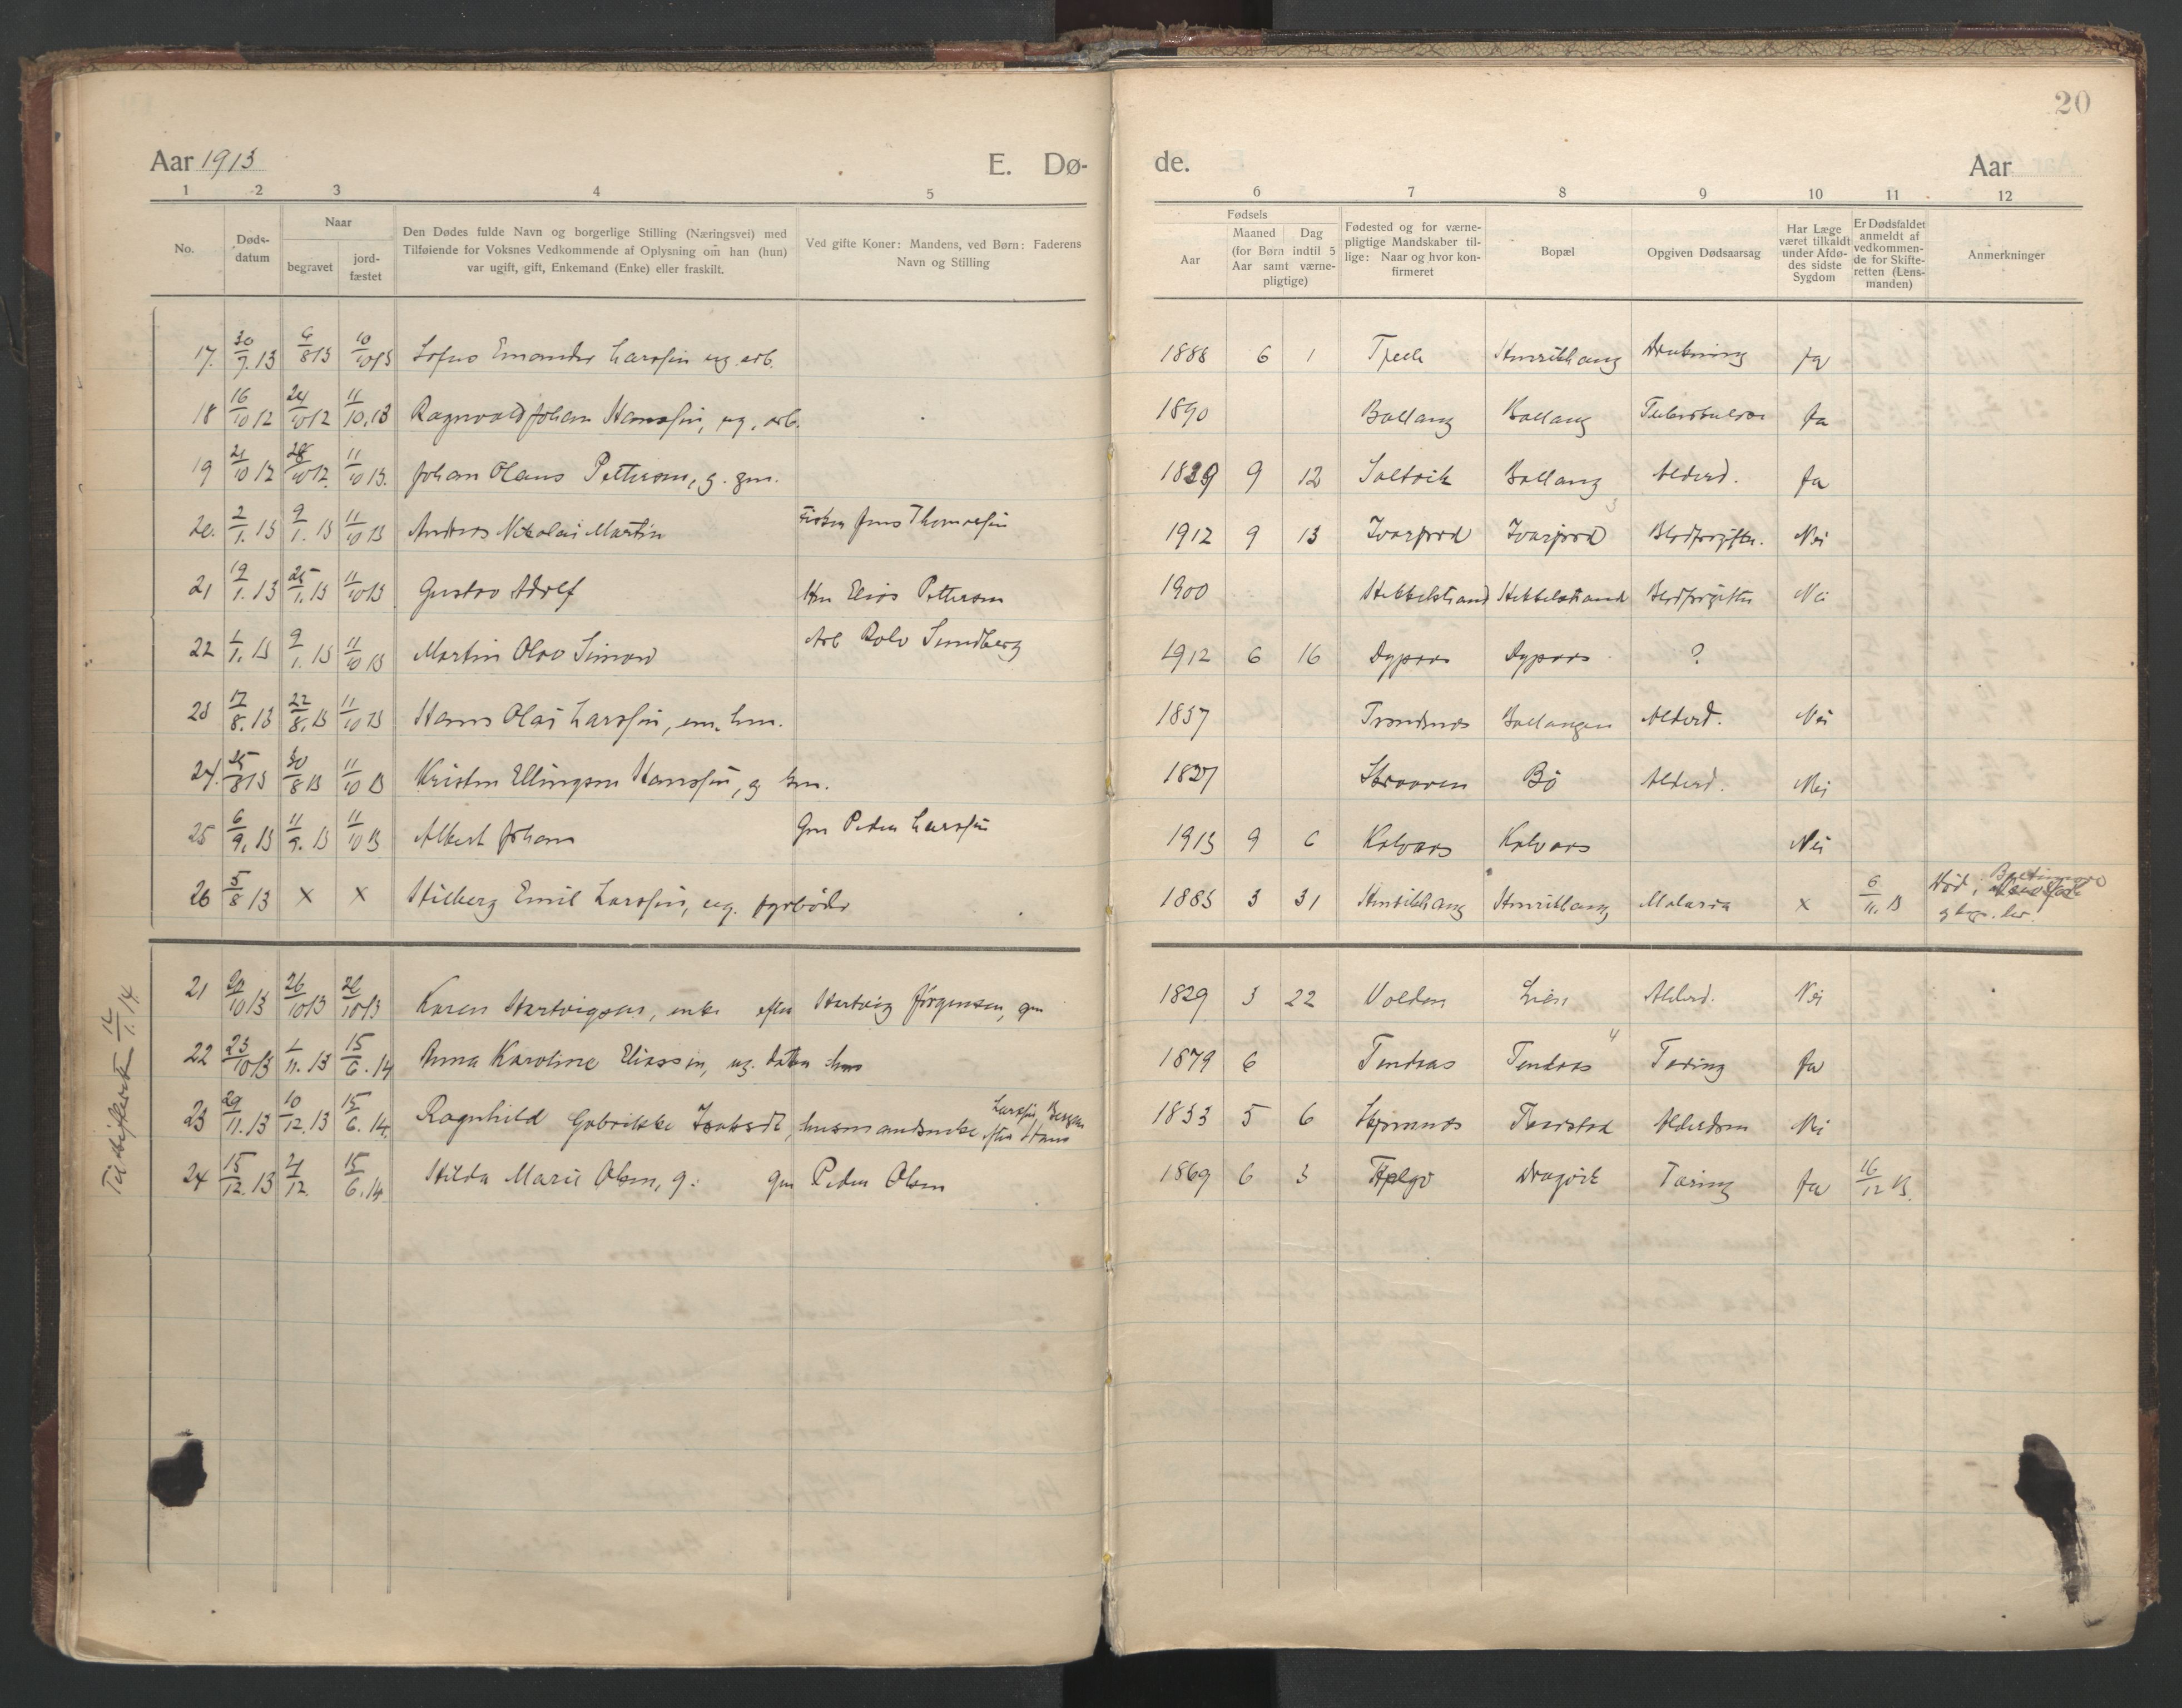 20
Aar 1913 E. Dø- de. Aar
1 2 3 4 5 6 7 8 9 10 11 12
No.
Døds-
datum
Naar
begravet
jord-
fæstet
Den Dødes fulde Navn og borgerlige Stilling (Næringsvei) med
Tilføiende for Voksnes Vedkommende af Oplysning om han (hun)
var ugift, gift, Enkemand (Enke) eller fraskilt.
Ved gifte Koner: Mandens, ved Børn: Faderens
Navn og Stilling
Fødsels
Aar
Maaned Dag
(for Børn indtil 5
Aar samt værne-
pligtige)
Fødested og for værne-
pligtige Mandskaber til-
lige: Naar og hvor kon-
firmeret
Bopæl
Opgiven Dødsaarsag
Har Læge
været tilkaldt
under Afdø-
des sidste
Sygdom
Er Dødsfaldet
anmeldt af
vedkommen-
de for Skifte-
retten (Lens-
manden)
Anmerkninger
17. 30/7.13 6/8 13 10/10 13 Larssen ug. arb. 1888 6 1 Drukning Ja
18 16/10 12 24/10 12 11/10.13 Ragnvald Johan Hanssen, ug. arb. 1890 Ballang Ballang Tuberkulose Ja
19 21/10 12 28/10 12. 11/10 13. Johan Olaus Pettersen, g. gm. 9 12 Saltvik Ballang Alderd. Ja
20. 2/1.13 9/1.13 11/10 13 Andreas Nikolai Martin Fisker Jens Thomassen 1912 9 13 Ivarjord Ivarjord Blodforgiftn. Nei
21 19/1.13 25/1.13 11/10 13 Gustav Adolf Elias Pettersen 1900 Stubbelstrand Blodforgiftn Nei
22 1/1.13 9/1.13 11/10 13 Martin Olav Simon Arb Rolv Sundberg 1912 6 16 Dypaas Dypaas ?
23 17/8.13 22/8.13 11/10 13 Hans Olai Larssen, em. hm. 1837 Trondenes Ballangen Alderd. Nei
24. 25/8 13 30/8 13 11/10 13 Kristen Ellingsen Hanssen, g hm. 1827 Bø Alderd. Nei
25 6/9.13 11/9.13 11/10 13 Albert Johan Gm Peder Larssen 1913 9 6 Kalvaas Kalvaas Nei
26 5/8 13 x x Hilberg Emil Larssen, ug. fyrbøder 1885 3 31 Malaria x 6/11.13
21 10 13 26/10 13 26/10 13 Karen Hartvigsen, enke efter Hartvig Jørgensen, gm 1829 3 22 Volden Lien Alderd. Nei
22 23/10 13 1/11.13 15/6.14 Anna Karoline Eliassen, ug. datter 1879 6 Tæring Ja
23 29/11.13 10/12.13 15/6.14. Ragnhild Gabrikke Isaksdt, husmandsenke efter Hans Larssen 1833 5 6 Skjomnes Alderdom Nei
24 15/12.13 21/12. 15/6.14. Hilda Marie Olsen, g. gm Peder Olsen 1869 6 3 Dragvik Tæring Ja 16/12 13.
Til skifteretten 12/1.14